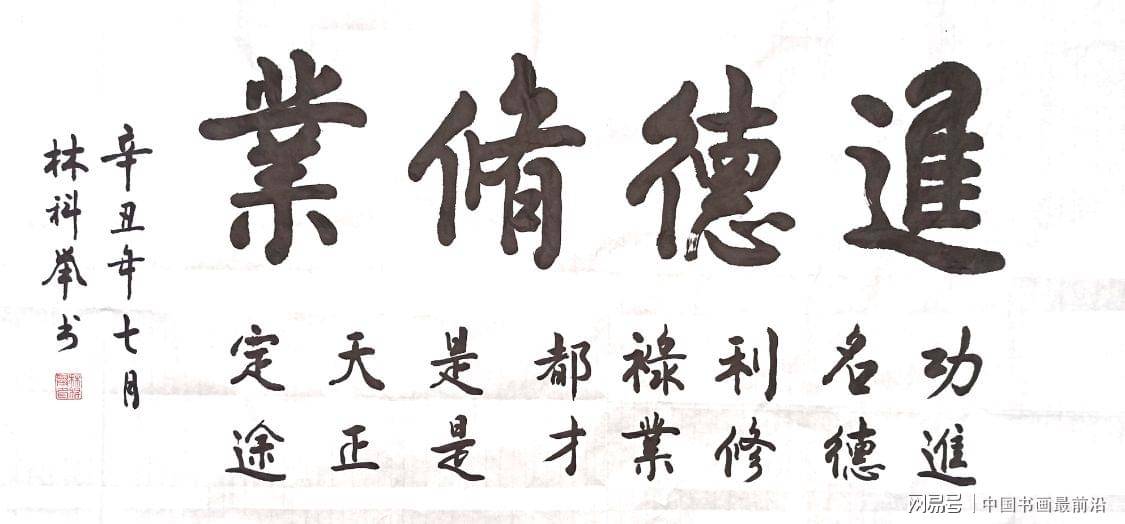 進德脩業
功名利祿都是天定
進德修業才是正途
辛丑年七月
林科举书
网易号 | 中国书画最前沿